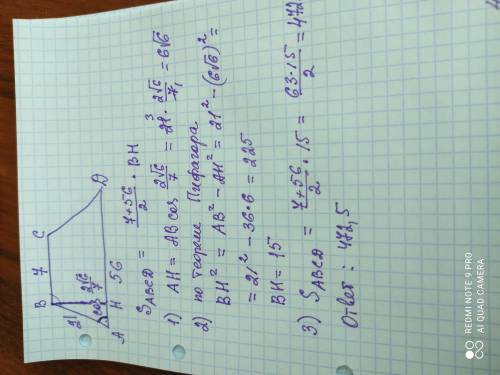 B 7 C
21
cos 2√6/7
A H 56 D
S_ABCD = (7+56)/2 · BH
1) AH = AB cos 2√6/7 = 21 · 2√6/7 = 6√6
3
1
2) по теореме Пифагора
BH² = AB² − AH² = 21² − (6√6)² =
= 21² − 36·6 = 225
BH = 15
3) S_ABCD = (7+56)/2 · 15 = (63·15)/2 = 472
Ответ: 472,5
REDMI NOTE 9 PRO
AI QUAD CAMERA